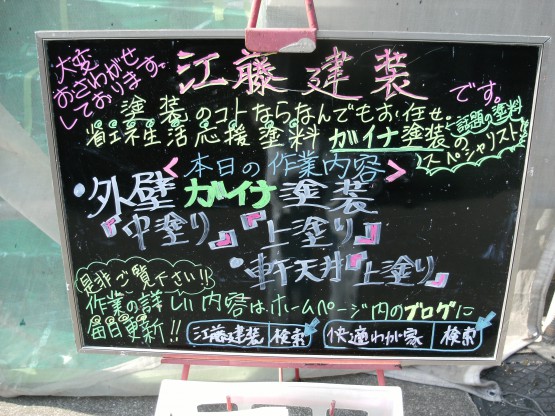 大変
おさわがせ
しております。
江藤建装です。
塗装のコトならなんでもお任せ。
省エネ生活応援塗料 ガイナ塗装の
話題の塗料
スペシャリスト
<本日の作業内容>
・外壁ガイナ塗装
『中塗り』『上塗り』
・軒天井『上塗り』
是非ご覧下さい!!
作業の詳しい内容はホームページ内のブログに
毎日更新!!
江藤建装 検索 快適わが家 検索